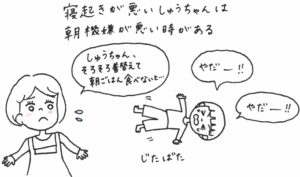 寝起きが悪いしゅうちゃんは
朝機嫌が悪い時がある
しゅうちゃん、
そろそろ着替えて
朝ごはん食べないと…
やだー!!
やだー!!
じたばた